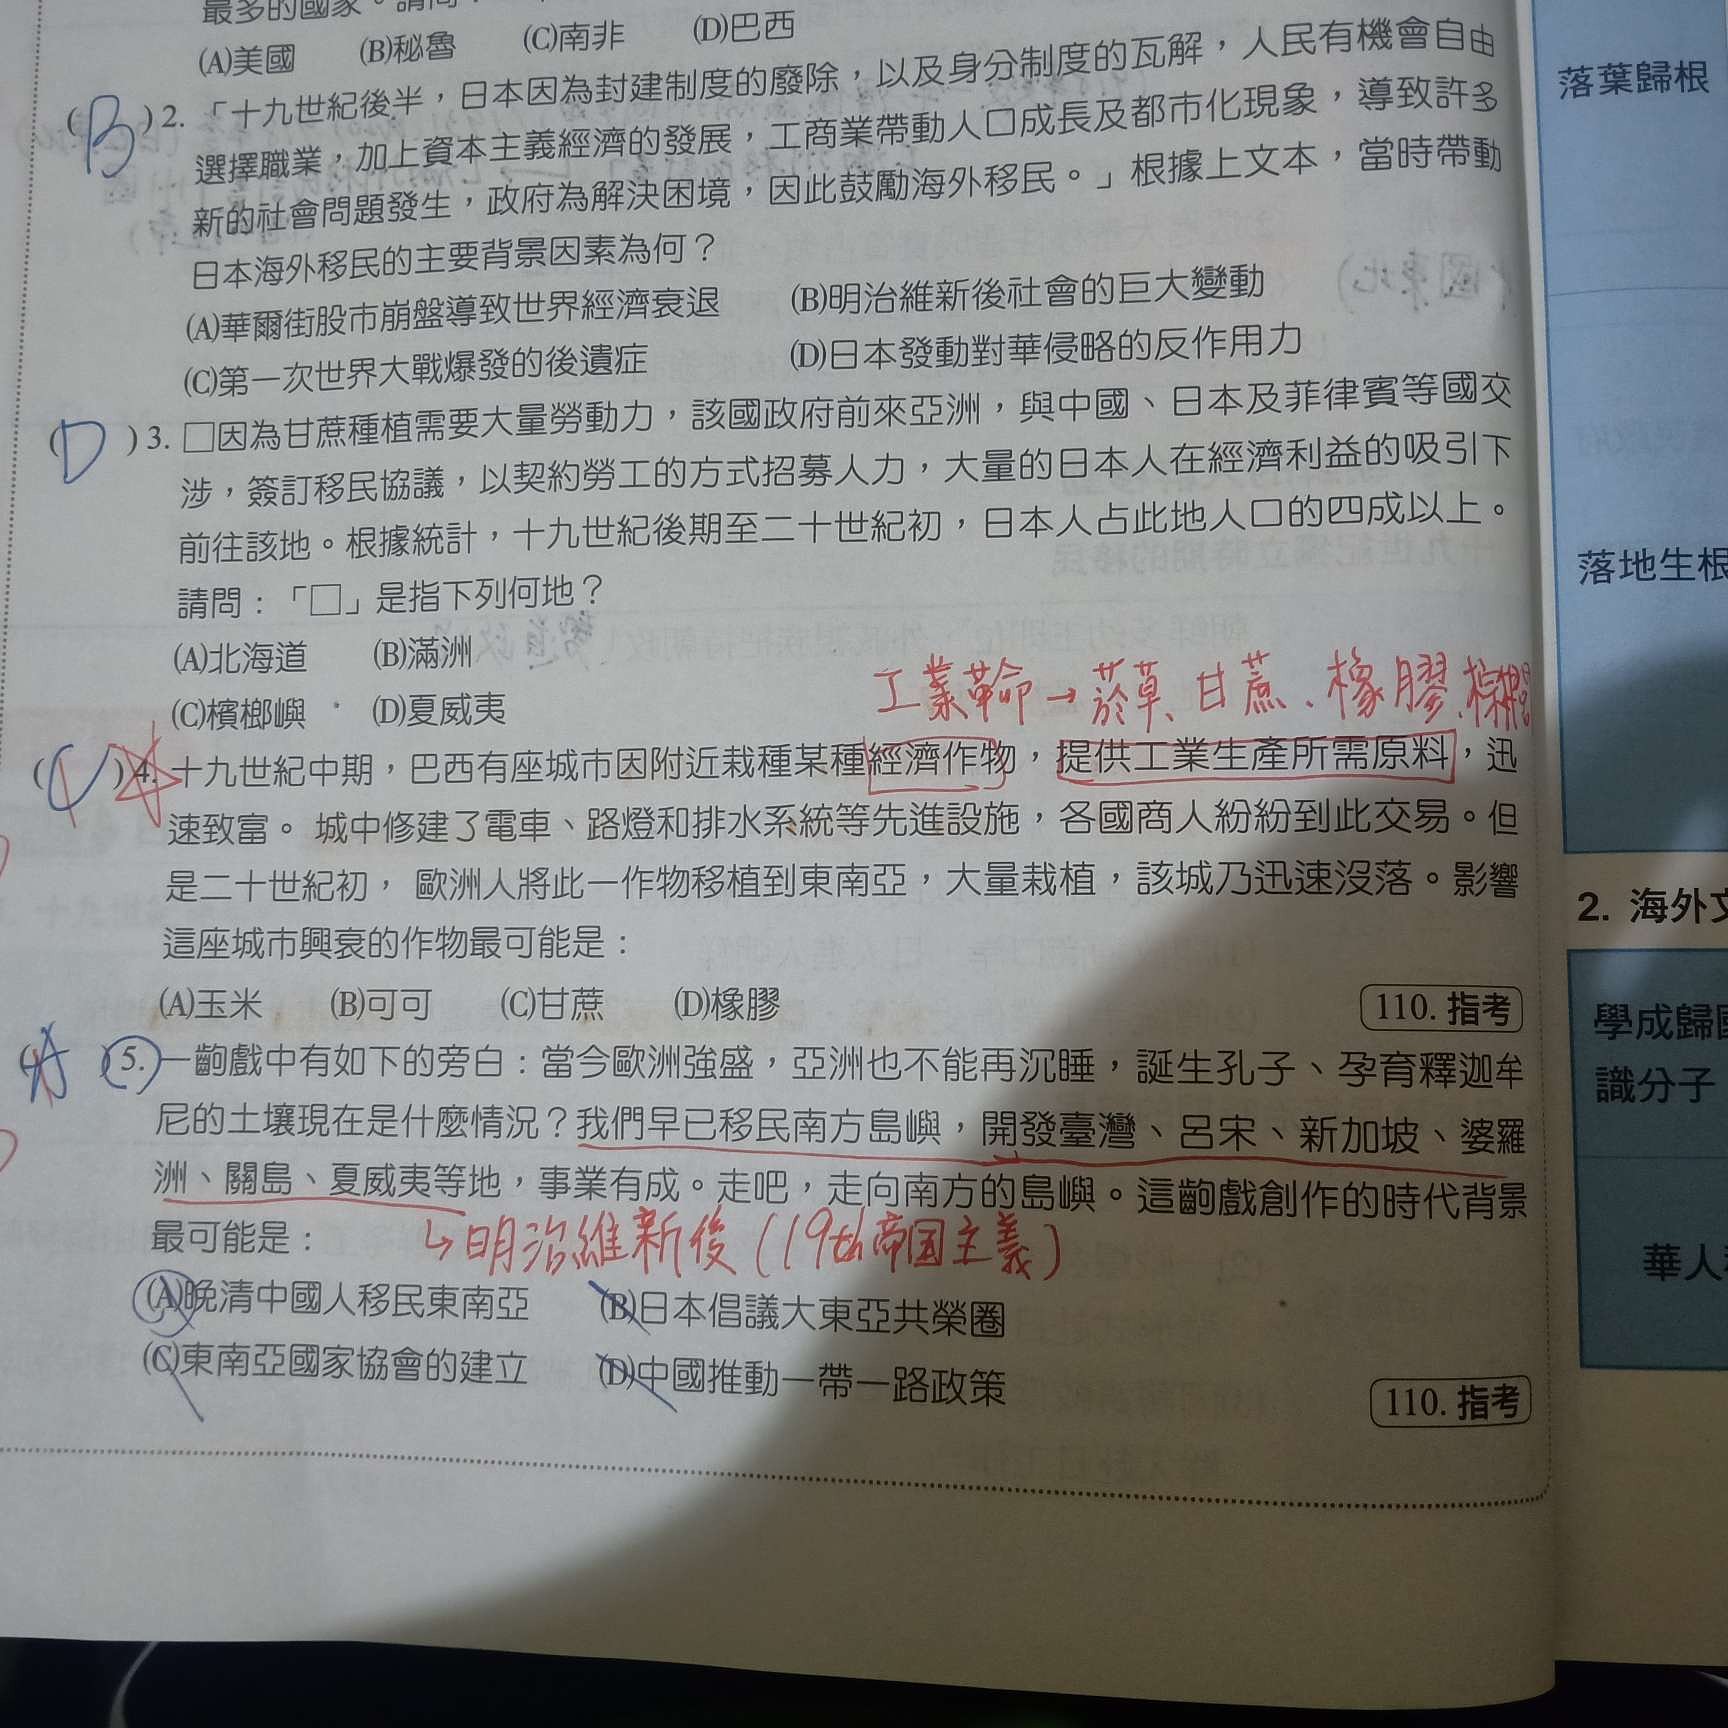 最多的國家。請問：
(A)美國 (B)秘魯 (C)南非 (D)巴西
(B)2. 「十九世紀後半，日本因為封建制度的廢除，以及身分制度的瓦解，人民有機會自由
選擇職業，加上資本主義經濟的發展，工商業帶動人口成長及都市化現象，導致許多
新的社會問題發生，政府為解決困境，因此鼓勵海外移民。」根據上文本，當時帶動
日本海外移民的主要背景因素為何？
(A)華爾街股市崩盤導致世界經濟衰退 (B)明治維新後社會的巨大變動
(C)第一次世界大戰爆發的後遺症 (D)日本發動對華侵略的反作用力
(D)3. □因為甘蔗種植需要大量勞動力，該國政府前來亞洲，與中國、日本及菲律賓等國交
涉，簽訂移民協議，以契約勞工的方式招募人力，大量的日本人在經濟利益的吸引下
前往該地。根據統計，十九世紀後期至二十世紀初，日本人占此地人口的四成以上。
請問：「□」是指下列何地？
(A)北海道 (B)滿洲
(C)檳榔嶼 (D)夏威夷
工業革命→菸草、甘蔗、橡膠、棕櫚
(C)4. 十九世紀中期，巴西有座城市因附近栽種某種經濟作物，提供工業生產所需原料，迅
速致富。城中修建了電車、路燈和排水系統等先進設施，各國商人紛紛到此交易。但
是二十世紀初，歐洲人將此一作物移植到東南亞，大量栽植，該城乃迅速沒落。影響
這座城市興衰的作物最可能是：
(A)玉米 (B)可可 (C)甘蔗 (D)橡膠 110. 指考
(A)5. 一齣戲中有如下的旁白：當今歐洲強盛，亞洲也不能再沉睡，誕生孔子、孕育釋迦牟
尼的土壤現在是什麼情況？我們早已移民南方島嶼，開發臺灣、呂宋、新加坡、婆羅
洲、關島、夏威夷等地，事業有成。走吧，走向南方的島嶼。這齣戲創作的時代背景
最可能是：
↳明治維新後(19th帝国主義)
(A)晚清中國人移民東南亞 (B)日本倡議大東亞共榮圈
(C)東南亞國家協會的建立 (D)中國推動一帶一路政策
110. 指考
落葉歸根
落地生根
2. 海外文
學成歸國
識分子
華人